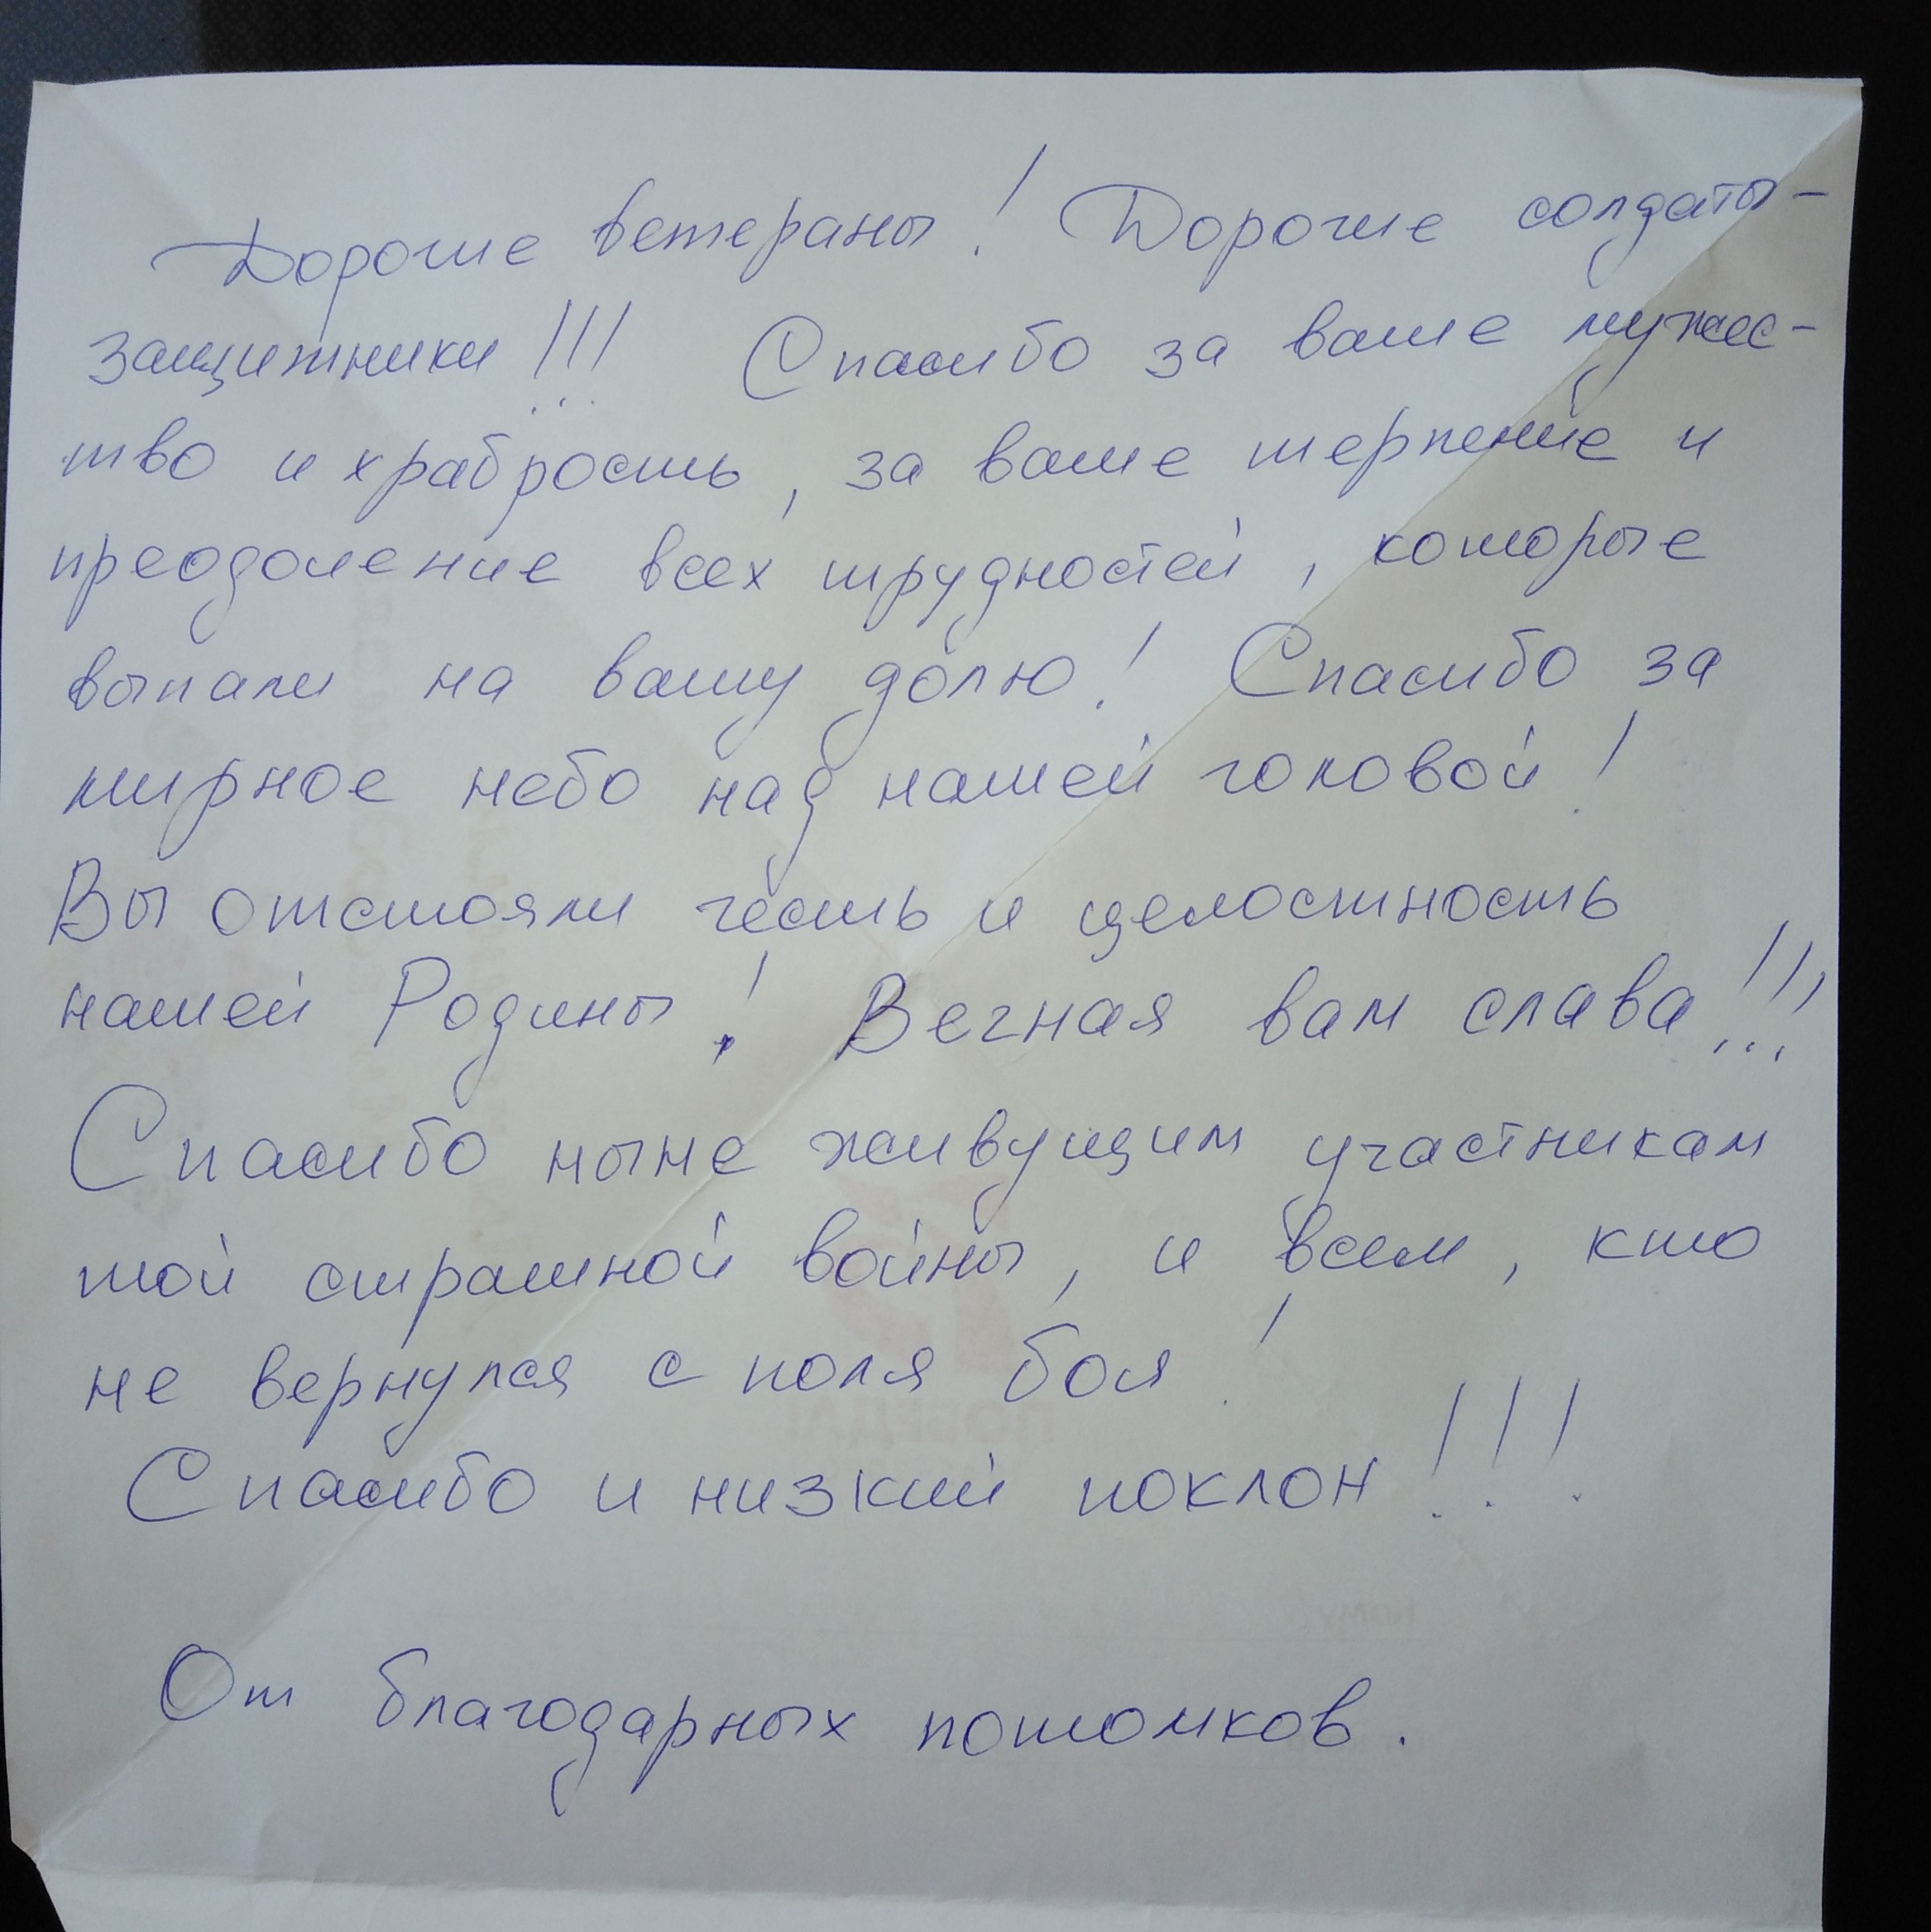 Дорогие ветераны! Дорогие солдаты-
защитники!!! Спасибо за ваше мужес-
тво и храбрость, за ваше терпение и
преодоление всех трудностей, которые
выпали на вашу долю! Спасибо за
мирное небо над нашей головой!
Вы отстояли честь и целостность
нашей Родины! Вечная вам слава!!!
Спасибо ныне живущим участникам
той страшной войны, и всем, кто
не вернулся с поля боя!
Спасибо и низкий поклон!!!
От благодарных потомков.